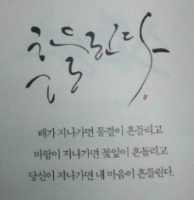 흔들린다.
배가 지나가면 물결이 흔들리고
바람이 지나가면 꽃잎이 흔들리고
당신이 지나가면 내 마음이 흔들린다.